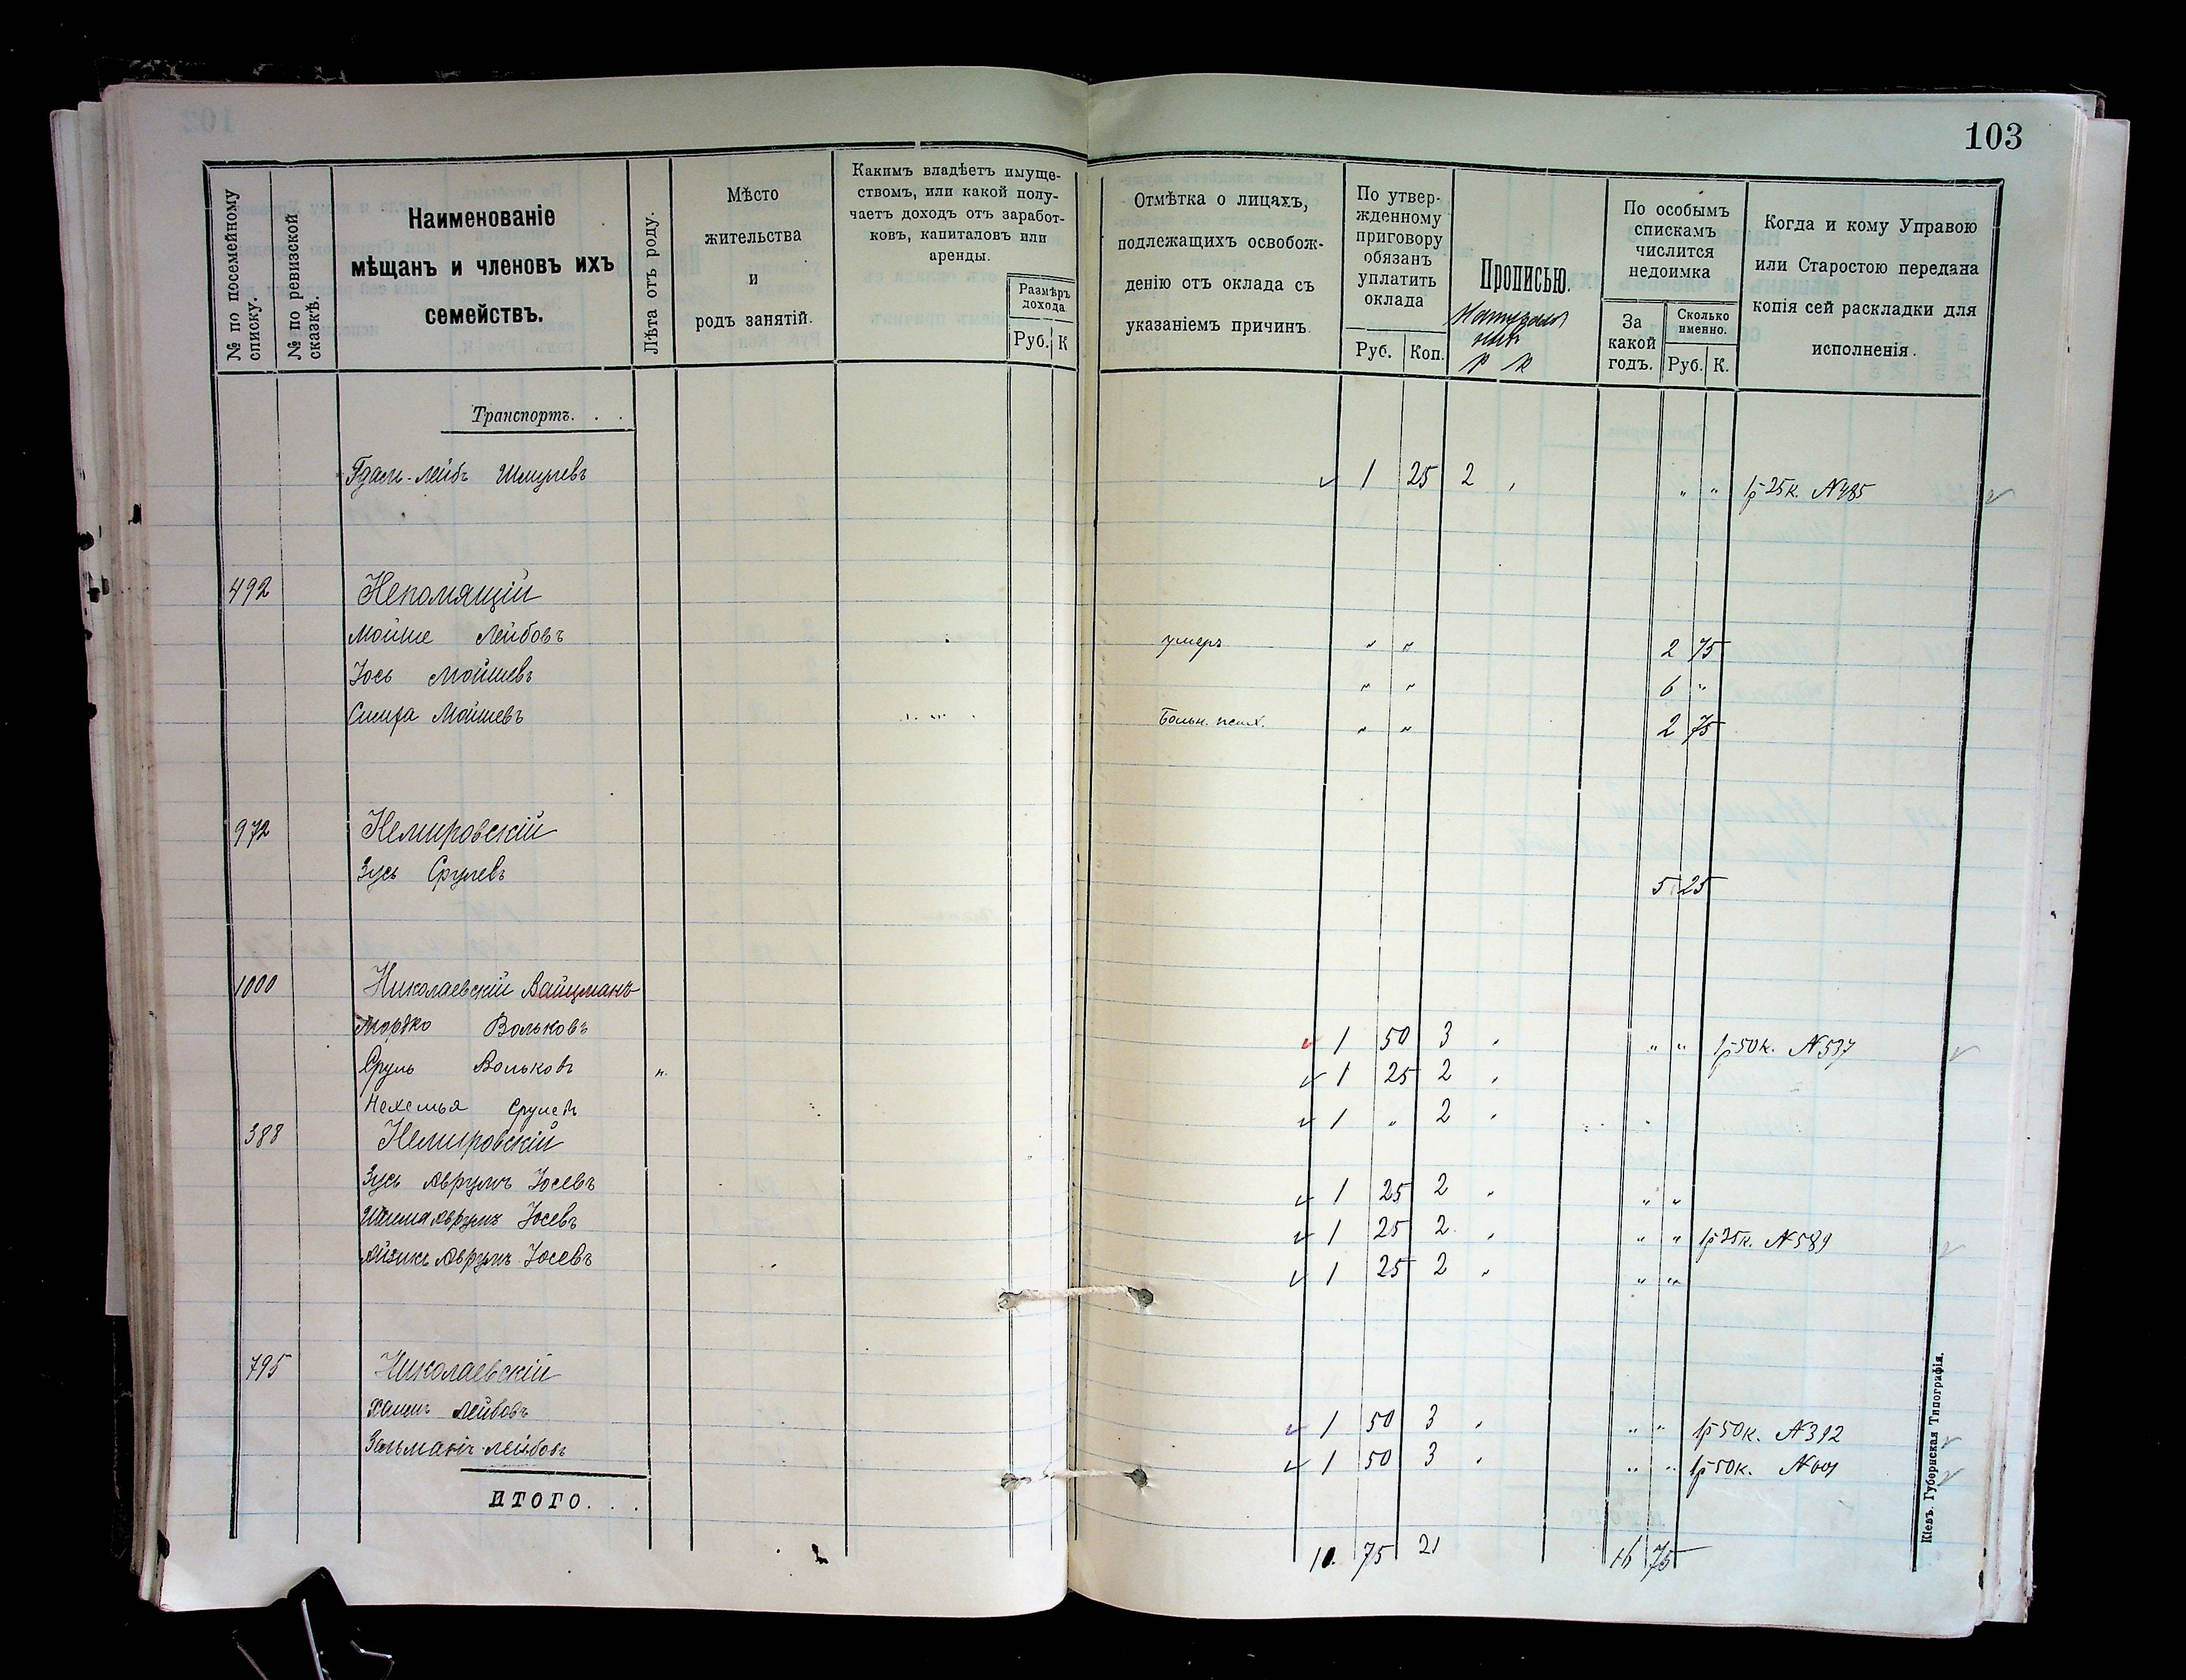 103
№ по посемейному списку.
№ по ревизской сказкѣ.
Наименованіе
мѣщанъ и членовъ ихъ
семействъ.
Лѣта отъ роду.
Мѣсто
жительства
и
родъ занятій.
Какимъ владѣетъ имуще-
ствомъ, или какой полу-
чаетъ доходъ отъ заработ-
ковъ, капиталовъ или
аренды.
Размѣръ
дохода
Руб. К
Отмѣтка о лицахъ,
подлежащихъ освобож-
денію отъ оклада съ
указаніемъ причинъ.
По утвер-
жденному
приговору
обязанъ
уплатить
оклада
Руб. Коп.
Прописью.
р к
По особымъ
спискамъ
числится
недоимка
За
какой
годъ.
Сколько
именно.
Руб. К.
Когда и кому Управою
или Старостою передана
копія сей раскладки для
исполненія.
Транспортъ. . .
Гдаль-Лейбъ Шмулевъ 1 25 2 " " 1р 25к. N485
492 Непомящій
Мойше Лейбовъ умеръ " " 2 75
Іось Мойшевъ " " 6 "
Мойшевъ Больн. " " 2 75
972 Немировскій
Зусь Срулевъ 5 25
1000 Николаевскій Вайцманъ
Мордко Вольковъ 1 50 3 " " 1р 50к. N537
Сруль Вольковъ 1 25 2
Нехемья Срулевъ 1 " 2
388 Немировскій
Зусь Аврумъ Іосевъ 1 25 2 " "
Аврумъ Іосевъ 1 25 2 " " 1р 25к. N589
Айзикъ Аврумъ Іосевъ 1 25 2 " "
795 Николаевскій
Хаимъ Лейбовъ 1 50 3 " " 1р 50к. N392
Зальманъ Лейбовъ 1 50 3 " " 1р 50к.
ИТОГО. . .
10. 75 21 16 75
Кіевъ. Губернская Типографія.